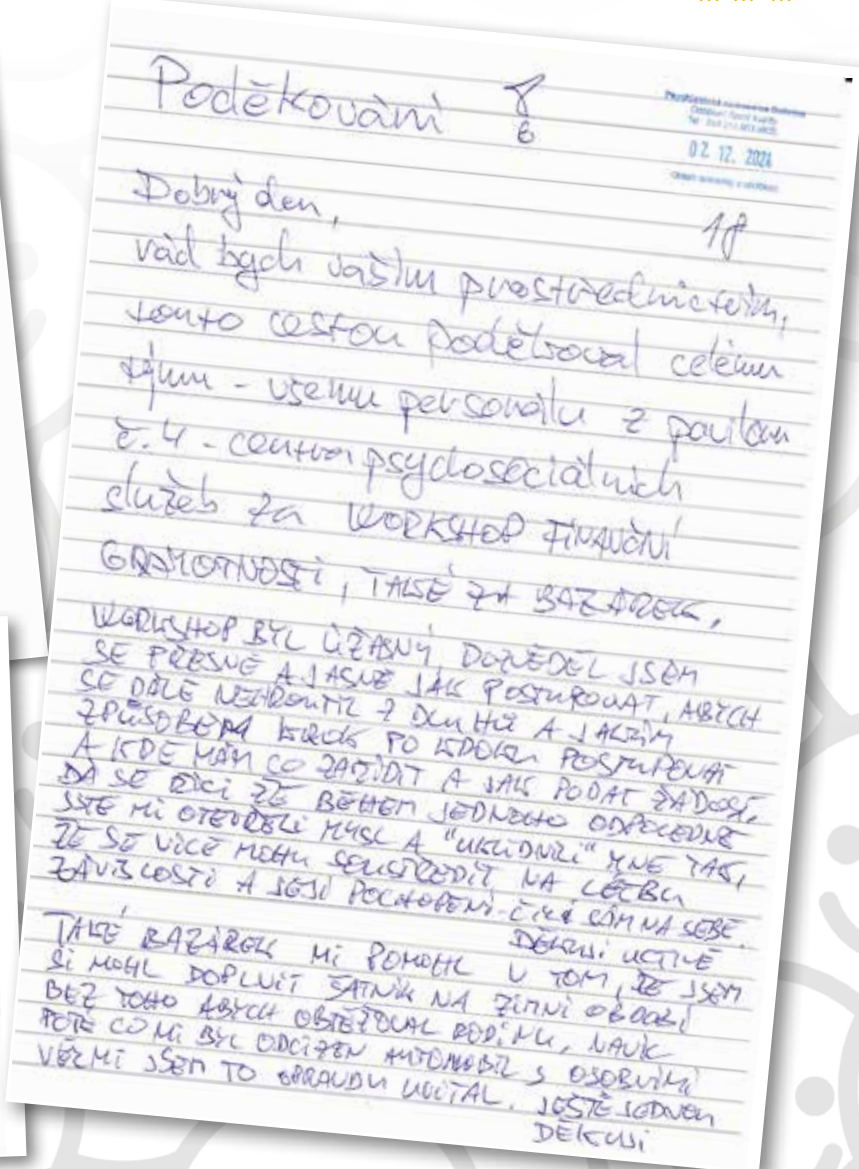 Poděkování
02. 12. 2024
Dobrý den,
rád bych vaším prostřednictvím,
touto cestou poděkoval celému
týmu - všemu personálu z pavilonu
č. 4 - centra psychosociálních
služeb za WORKSHOP FINANČNÍ
GRAMOTNOSTI, TAKÉ ZA BAZÁREK.
WORKSHOP BYL ÚŽASNÝ DOZVĚDĚL JSEM
SE PŘESNĚ A JASNĚ JAK POSTUPOVAT, ABYCH
SE DÁLE NEHROUTIL Z DLUHŮ A JAKÝM
ZPŮSOBEM KROK PO KROKU POSTUPOVAT
A KDE MÁM CO ZAŘÍDIT A JAK PODAT ŽÁDOST.
DÁ SE ŘÍCI ŽE BĚHEM JEDNOHO ODPOLEDNE
JSTE MI OTEVŘELI MYSL A "UKLIDNILI" MNE TAK,
ŽE SE VÍCE MOHU SOUSTŘEDIT NA LÉČBU
ZÁVISLOSTI A JEJÍ POCHOPENÍ - SÁM NA SEBE.
DĚKUJI UCTIVĚ
TAKÉ BAZÁREK MI POMOHL V TOM, ŽE JSEM
SI MOHL DOPLNIT ŠATNÍK NA ZIMNÍ OBDOBÍ
BEZ TOHO ABYCH OBTĚŽOVAL RODINU, NAVÍC
POTÉ CO MI BYL ODCIZEN AUTOMOBIL S OSOBNÍMI
VĚCMI JSEM TO OPRAVDU UVÍTAL. JEŠTĚ JEDNOU
DĚKUJI